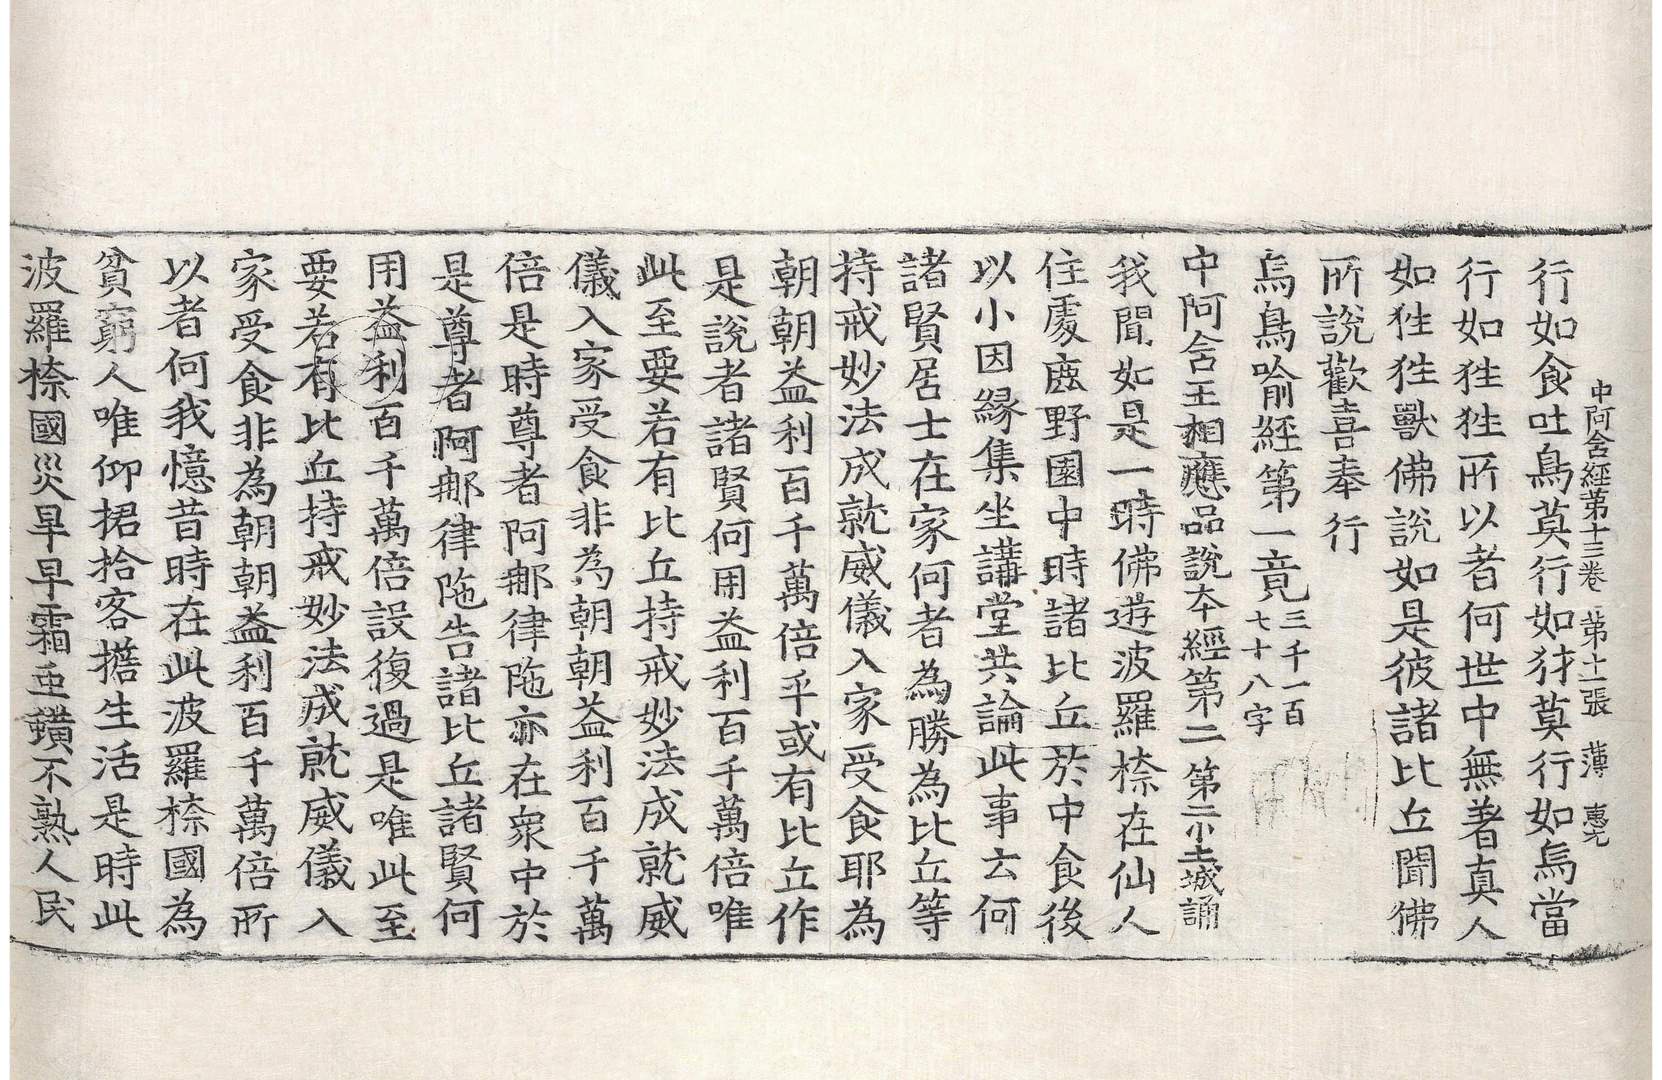 中阿含經第十三卷 第十二張 薄 惠元
行如食吐鳥莫行如犲莫行如烏當
行如狌狌所以者何世中無著真人
如狌狌獸佛說如是彼諸比丘聞佛
所說歡喜奉行
烏鳥喻經第一竟三千一百七十八字
中阿含王相應品說夲經第二第二小土城誦
我聞如是一時佛遊波羅㮈在仙人
住處鹿野園中時諸比丘於中食後
以小因緣集坐講堂共論此事云何
諸賢居士在家何者為勝為比丘等
持戒妙法成就威儀入家受食耶為
朝朝益利百千萬倍乎或有比丘作
是說者諸賢何用益利百千萬倍唯
此至要若有比丘持戒妙法成就威
儀入家受食非為朝朝益利百千萬
倍是時尊者阿那律陁亦在衆中於
是尊者阿那律陁告諸比丘諸賢何
用益利百千萬倍設復過是唯此至
要若有比丘持戒妙法成就威儀入
家受食非為朝朝益利百千萬倍所
以者何我憶昔時在此波羅㮈國為
貧窮人唯仰捃拾客擔生活是時此
波羅㮈國災旱早霜虫蝗不熟人民